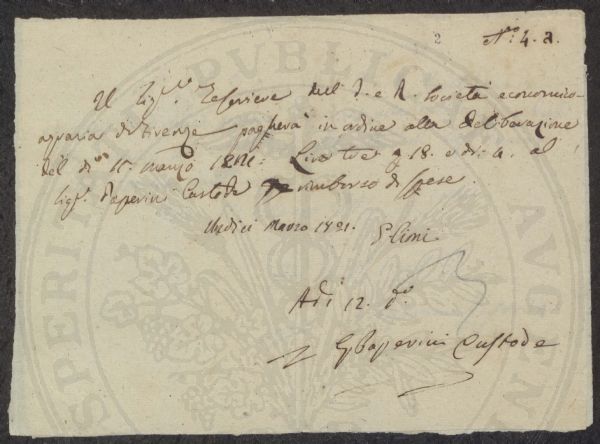 2
N.º 4. a.
Il Sig.re Tesoriere dell' I. e R. Società economico-
agraria di Firenze pagherà in ordine alla deliberazione
del dì 11. marzo 1821: Lire tre 18. e d. 4. al
Sig.r Paperini Custode rimborso di spese.
Undici Marzo 1821.
Adì 12. do
Paperini Custode
PUBLIC
AUG
SPERI